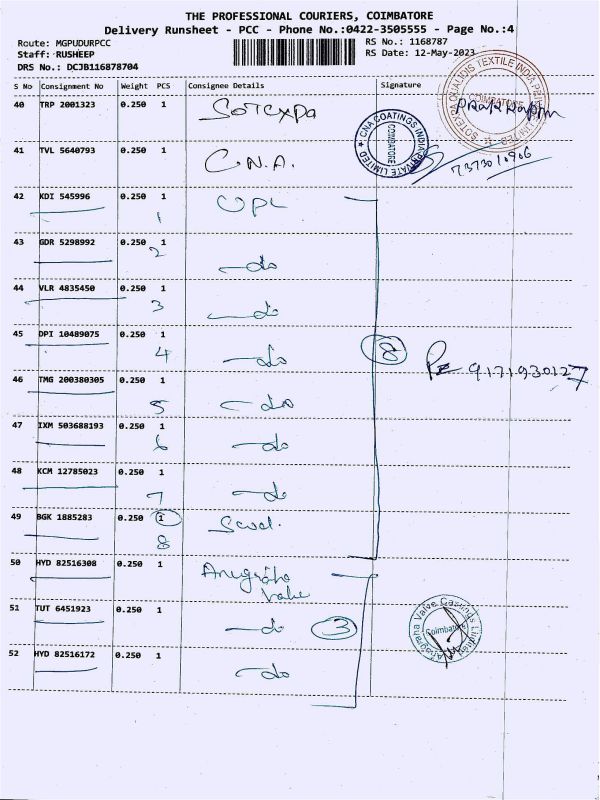 THE PROFESSIONAL COURIERS, COIMBATORE
Delivery Runsheet - PCC - Phone No.:0422-3505555 - Page No.:4
Route: MGPUDURPCC
RS No.: 1168787
Staff: RUSHEEP
RS Date: 12-May-2023
DRS No.: DCJB116878704
S No Consignment No Weight PCS Consignee Details Signature
40 TRP 2001323 0.250 1 SOTEXPA
SOTEXPA QUALIDIS TEXTILE INDIA
COIMBATORE
CNA COATINGS INDIA PRIVATE LIMITED
COIMBATORE
41 TVL 5640793 0.250 1 C.N.A.
7373010906
42 KDI 545996 0.250 1 UPL
1
43 GDR 5298992 0.250 1
2 -do
44 VLR 4835450 0.250 1
3 -do
45 DPI 10489075 0.250 1
4 -do
8
9171930127
46 TMG 200380305 0.250 1
5 -do
47 IXM 503688193 0.250 1
6 -do
48 KCM 12785023 0.250 1
7 -do
49 BGK 1885283 0.250 1
8
50 HYD 82516308 0.250 1 Anugraha
Valve
51 TUT 6451923 0.250 1
-do 3
Anugraha Valve Castings Limited
Coimbatore
52 HYD 82516172 0.250 1
-do